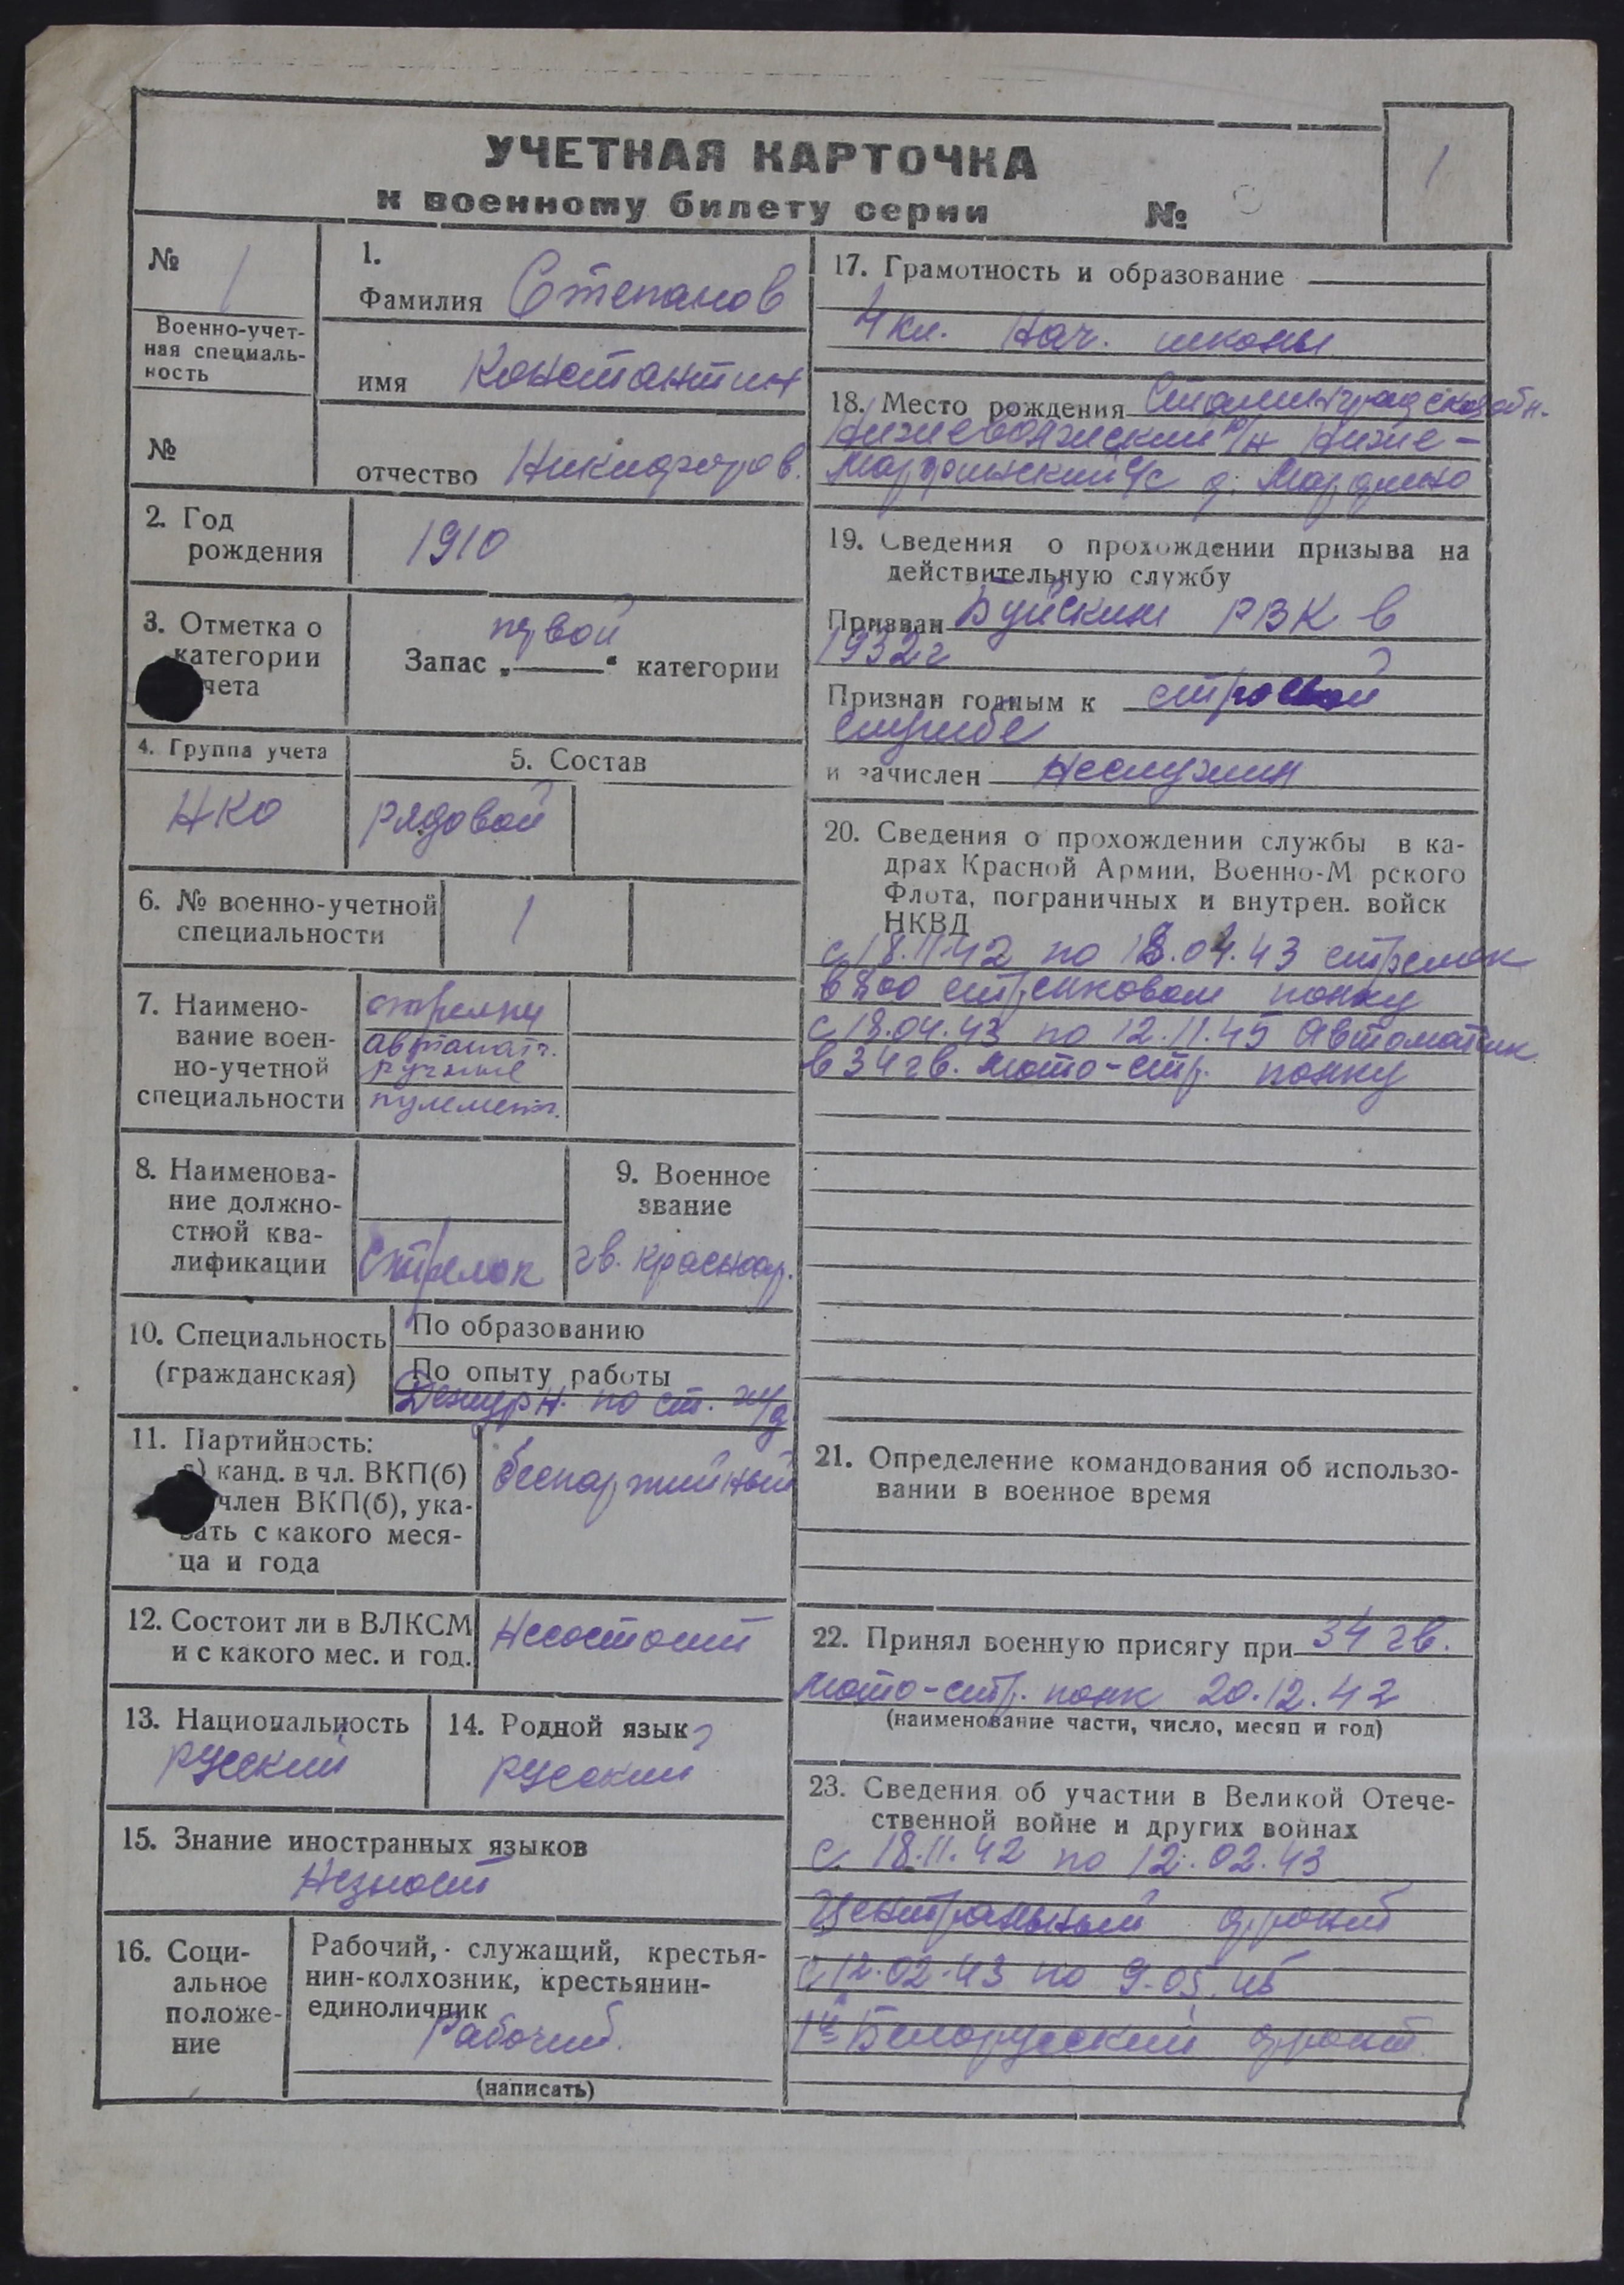 УЧЕТНАЯ КАРТОЧКА
к военному билету серии №
1
№ 1
Военно-учет-
ная специаль-
ность
№
1.
Фамилия Степанов
имя Константин
отчество Никифоров.
2. Год
рождения
1910
3. Отметка о
категории
чета
первой
Запас „ “ категории
4. Группа учета
НКО
5. Состав
рядовой
6. № военно-учетной
специальности
1
7. Наимено-
вание воен-
но-учетной
специальности
стрелки
автоматч.
ручные
пулемет.
8. Наименова-
ние должно-
стной ква-
лификации
Стрелок
9. Военное
звание
гв. красноар.
10. Специальность
(гражданская)
По образованию
По опыту работы
Дежурн. по ст. ж/д
11. Партийность:
а) канд. в чл. ВКП(б)
член ВКП(б), ука-
зать с какого меся-
ца и года
беспартийный
12. Состоит ли в ВЛКСМ
и с какого мес. и год.
Несостоит
13. Национальность
русский
14. Родной язык
русский
15. Знание иностранных языков
Незнает
16. Соци-
альное
положе-
ние
Рабочий, служащий, крестья-
нин-колхозник, крестьянин-
единоличник
Рабочий.
(написать)
17. Грамотность и образование
4 кл. нач. школы
18. Место рождения Сталинградской обл.
Нижневолжский р/н Нижне-
Мартынский с/с д.
19. Сведения о прохождении призыва на
действительную службу
Призван Буйским РВК в
1932 г
Признан годным к строевой
службе
и зачислен Неслужил
20. Сведения о прохождении службы в ка-
драх Красной Армии, Военно-М рского
Флота, пограничных и внутрен. войск
НКВД
с 18.11.42 по 18.04.43 стрелок
в 800 стрелковом полку
с 18.04.43 по 12.11.45 Автоматчик
в 34 гв. мото-стр. полку
21. Определение командования об использо-
вании в военное время
22. Принял военную присягу при 34 гв.
мото-стр. полк 20.12.42
(наименование части, число, месяц и год)
23. Сведения об участии в Великой Отече-
ственной войне и других войнах
с 18.11.42 по 12.02.43
Центральный фронт
с 12.02.43 по 9.05.45
1й Белорусский фронт.